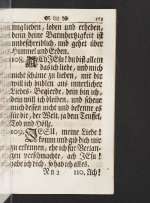 163
mug lieben, loben und erheben,
denn deine Barmhertzigkeit ist
unbeschreiblich, und gehet über
Himmel und Erden.
108. ACh JEsu! du bist allein
das ich liebe, und mich
nicht schäme zu lieben, mit dir
will ich in allen ans
Liebes-Begierde, denn bin ich,
dein will ich bleiben, und scheue
mich dessen nicht und bekenne es
für dir, der Welt, ja den Teuffel,
Tod und Hölle.
109. JEsu, meine Liebe!
komm und gib dich mir
zu erkennen, ehe ich für Verlan-
gen verschmachte, ach JEsu!
gebe ich dich, so hab ich alles.
N n 2 110. Ach!